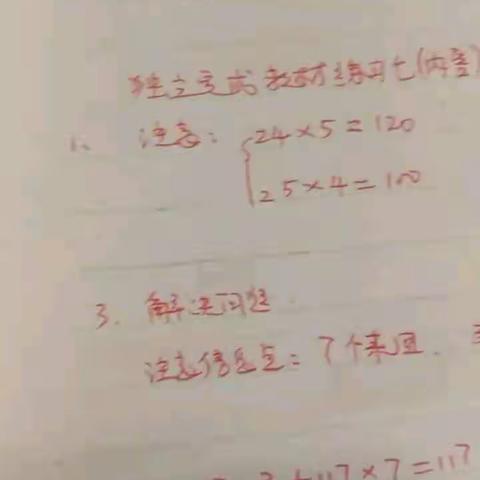 独立完成教材练习七(内容)
1. 注意: 24×5=120
25×4=100
3. 解决问题.
注意信息点: 7个来回.
117×7=117